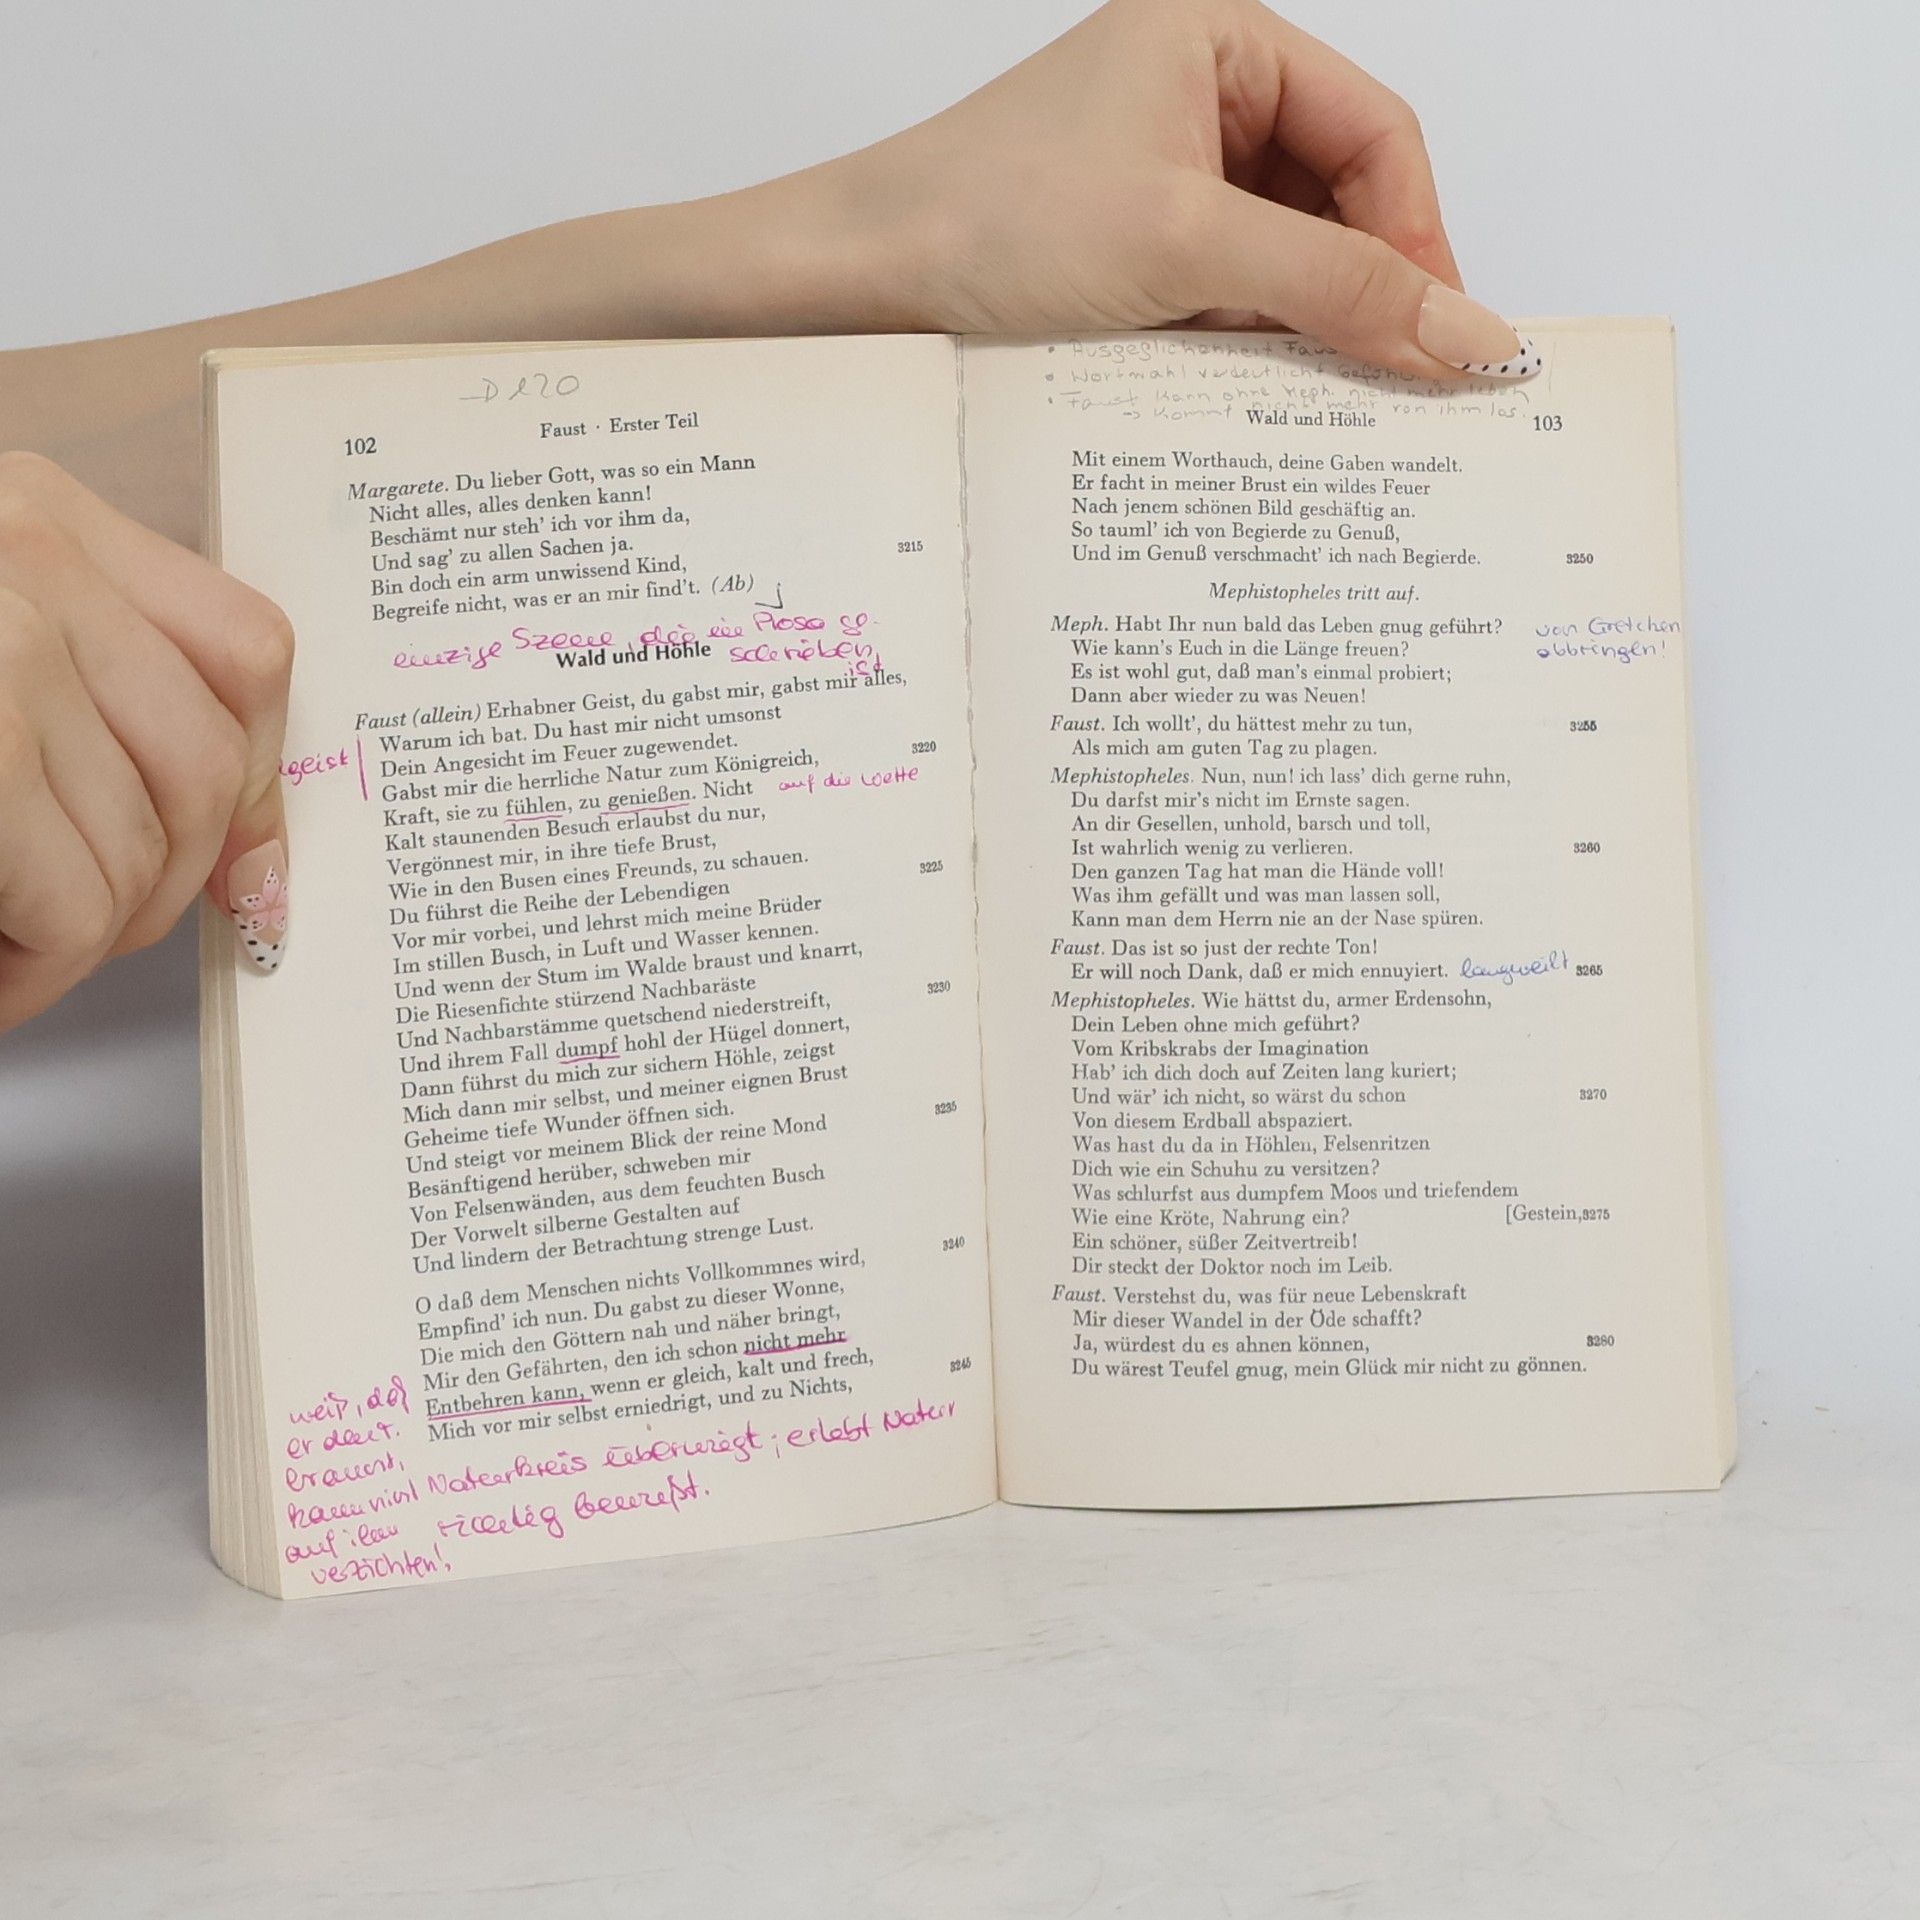 D 120
102
Faust · Erster Teil
Margarete. Du lieber Gott, was so ein Mann
Nicht alles, alles denken kann!
Beschämt nur steh' ich vor ihm da,
Und sag' zu allen Sachen ja. 3215
Bin doch ein arm unwissend Kind,
Begreife nicht, was er an mir find't. (Ab)
einzige Szene, die in Prosa ge-
schrieben,
ist
Wald und Höhle
Faust (allein) Erhabner Geist, du gabst mir, gabst mir alles,
Warum ich bat. Du hast mir nicht umsonst
Dein Angesicht im Feuer zugewendet. 3220
geist
Gabst mir die herrliche Natur zum Königreich,
Kraft, sie zu fühlen, zu genießen. Nicht auf die Wette
Kalt staunenden Besuch erlaubst du nur,
Vergönnest mir, in ihre tiefe Brust,
Wie in den Busen eines Freunds, zu schauen. 3225
Du führst die Reihe der Lebendigen
Vor mir vorbei, und lehrst mich meine Brüder
Im stillen Busch, in Luft und Wasser kennen.
Und wenn der Stum im Walde braust und knarrt,
Die Riesenfichte stürzend Nachbaräste 3230
Und Nachbarstämme quetschend niederstreift,
Und ihrem Fall dumpf hohl der Hügel donnert,
Dann führst du mich zur sichern Höhle, zeigst
Mich dann mir selbst, und meiner eignen Brust
Geheime tiefe Wunder öffnen sich. 3235
Und steigt vor meinem Blick der reine Mond
Besänftigend herüber, schweben mir
Von Felsenwänden, aus dem feuchten Busch
Der Vorwelt silberne Gestalten auf
Und lindern der Betrachtung strenge Lust. 3240
O daß dem Menschen nichts Vollkommnes wird,
Empfind' ich nun. Du gabst zu dieser Wonne,
Die mich den Göttern nah und näher bringt,
Mir den Gefährten, den ich schon nicht mehr
Entbehren kann, wenn er gleich, kalt und frech, 3245
Mich vor mir selbst erniedrigt, und zu Nichts,
weiß, daß
er
kann nicht
auf ihn
verzichten!
überwiegt; erlebt Natur
richtig bewußt.
• Ausgeglichenheit
• Wortwahl verdeutlicht
• Faust kann ohne Meph. nicht mehr leben
→ kommt nicht mehr von ihm los.
Wald und Höhle
103
Mit einem Worthauch, deine Gaben wandelt.
Er facht in meiner Brust ein wildes Feuer
Nach jenem schönen Bild geschäftig an.
So tauml' ich von Begierde zu Genuß,
Und im Genuß verschmacht' ich nach Begierde. 3250
Mephistopheles tritt auf.
Meph. Habt Ihr nun bald das Leben gnug geführt? von Gretchen
Wie kann's Euch in die Länge freuen? abbringen!
Es ist wohl gut, daß man's einmal probiert;
Dann aber wieder zu was Neuen!
Faust. Ich wollt', du hättest mehr zu tun, 3255
Als mich am guten Tag zu plagen.
Mephistopheles. Nun, nun! ich lass' dich gerne ruhn,
Du darfst mir's nicht im Ernste sagen.
An dir Gesellen, unhold, barsch und toll,
Ist wahrlich wenig zu verlieren. 3260
Den ganzen Tag hat man die Hände voll!
Was ihm gefällt und was man lassen soll,
Kann man dem Herrn nie an der Nase spüren.
Faust. Das ist so just der rechte Ton!
Er will noch Dank, daß er mich ennuyiert. langweilt 3265
Mephistopheles. Wie hättst du, armer Erdensohn,
Dein Leben ohne mich geführt?
Vom Kribskrabs der Imagination
Hab' ich dich doch auf Zeiten lang kuriert;
Und wär' ich nicht, so wärst du schon 3270
Von diesem Erdball abspaziert.
Was hast du da in Höhlen, Felsenritzen
Dich wie ein Schuhu zu versitzen?
Was schlurfst aus dumpfem Moos und triefendem
Wie eine Kröte, Nahrung ein? [Gestein, 3275
Ein schöner, süßer Zeitvertreib!
Dir steckt der Doktor noch im Leib.
Faust. Verstehst du, was für neue Lebenskraft
Mir dieser Wandel in der Öde schafft?
Ja, würdest du es ahnen können, 3280
Du wärest Teufel gnug, mein Glück mir nicht zu gönnen.